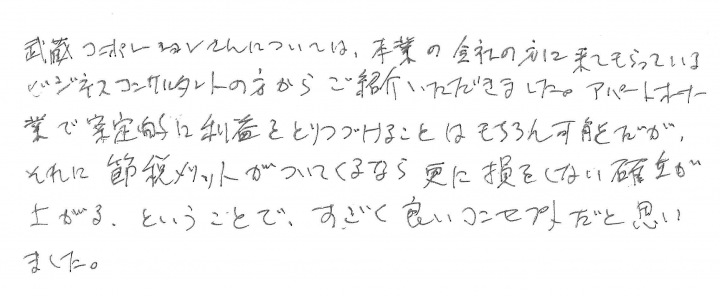 武蔵コーポレーションさんについては、本業の会社の方に来てもらっている
ビジネスコンサルタントの方からご紹介いただきました。アパートオーナー
業で安定的に利益をとりつづけることはもちろん可能だが、
それに節税メリットがついてくるなら更に損をしない確率が
上がる、ということで、すごく良いコンセプトだと思い
ました。